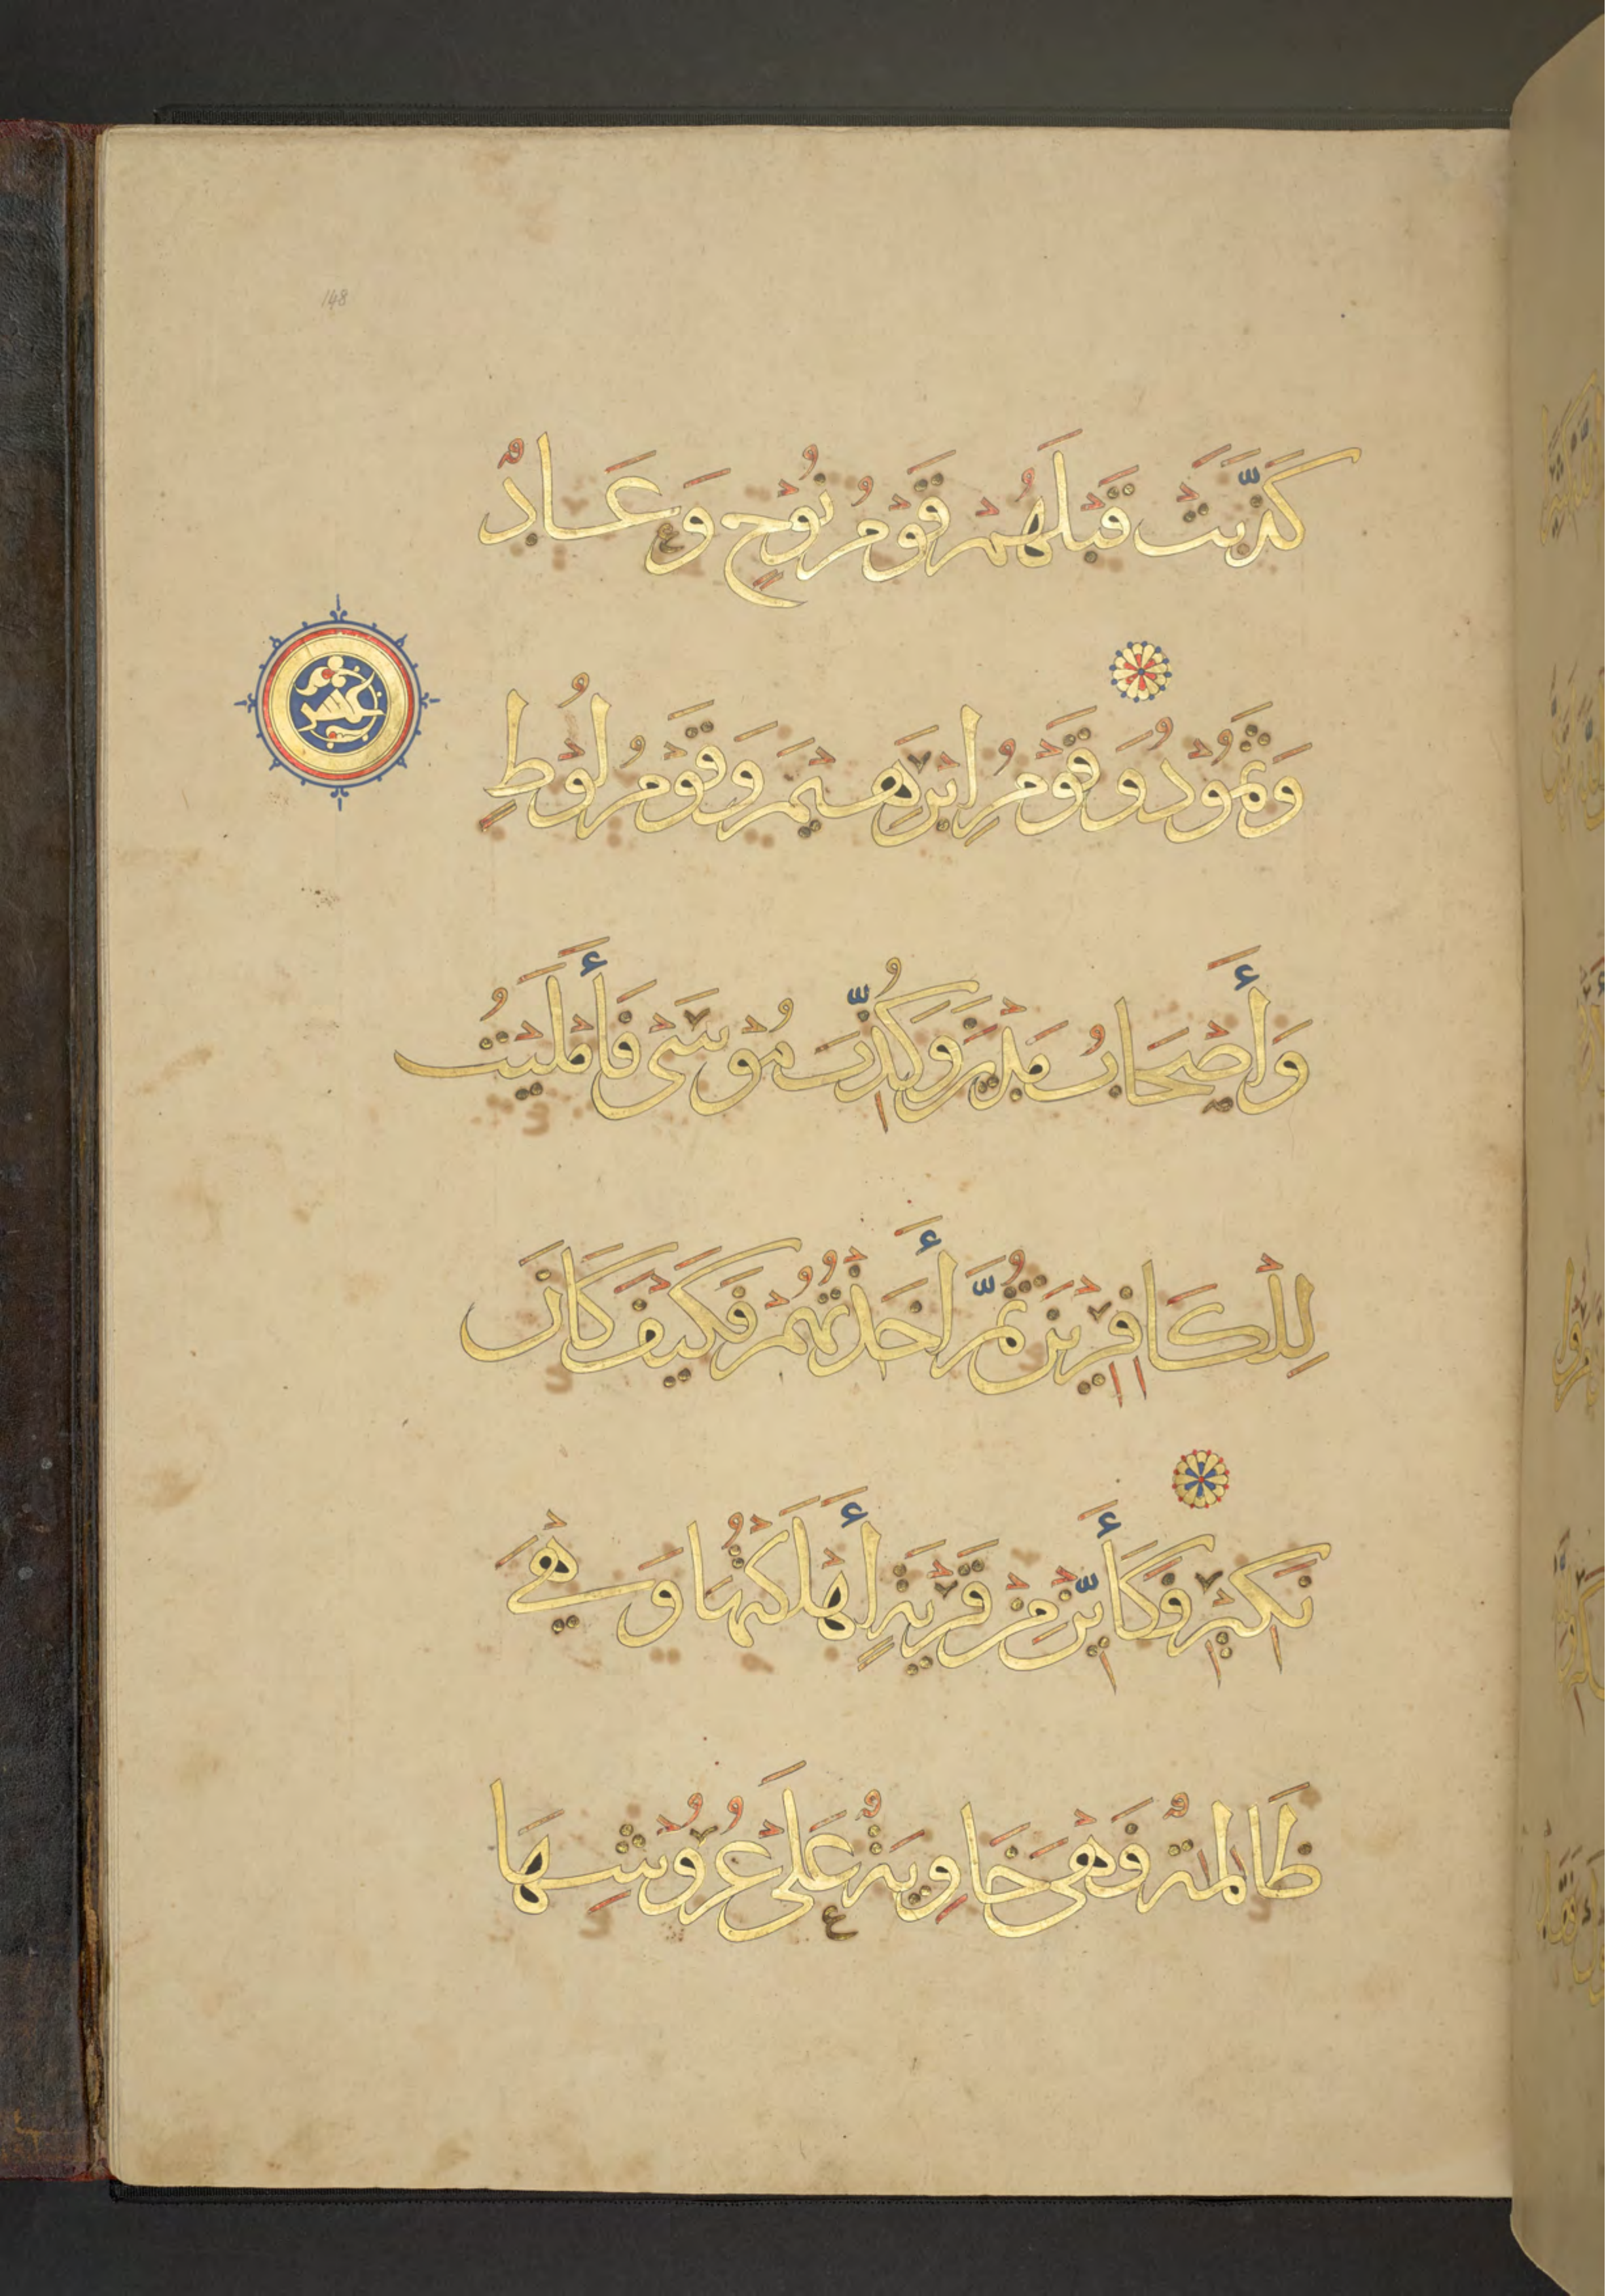 148
كَذَّبَتْ قَبْلَهُمْ قَوْمُ نُوْحٍ وَعَادٌ
وَثَمُوْدُ وَقَوْمُ اِبْرَهِيْمَ وَقَوْمُ لُوْطٍ
وَأَصْحَابُ مَدْيَنَ وَكُذِّبَ مُوْسَىٰ فَأَمْلَيْتُ
لِلْكَافِرِيْنَ ثُمَّ أَخَذْتُهُمْ فَكَيْفَ كَانَ
نَكِيْرِ وَكَأَيِّنْ مِنْ قَرْيَةٍ أَهْلَكْتُهَا وَهْيَ
ظَالِمَةٌ فَهْيَ خَاوِيَةٌ عَلَىٰ عُرُوْشِهَا